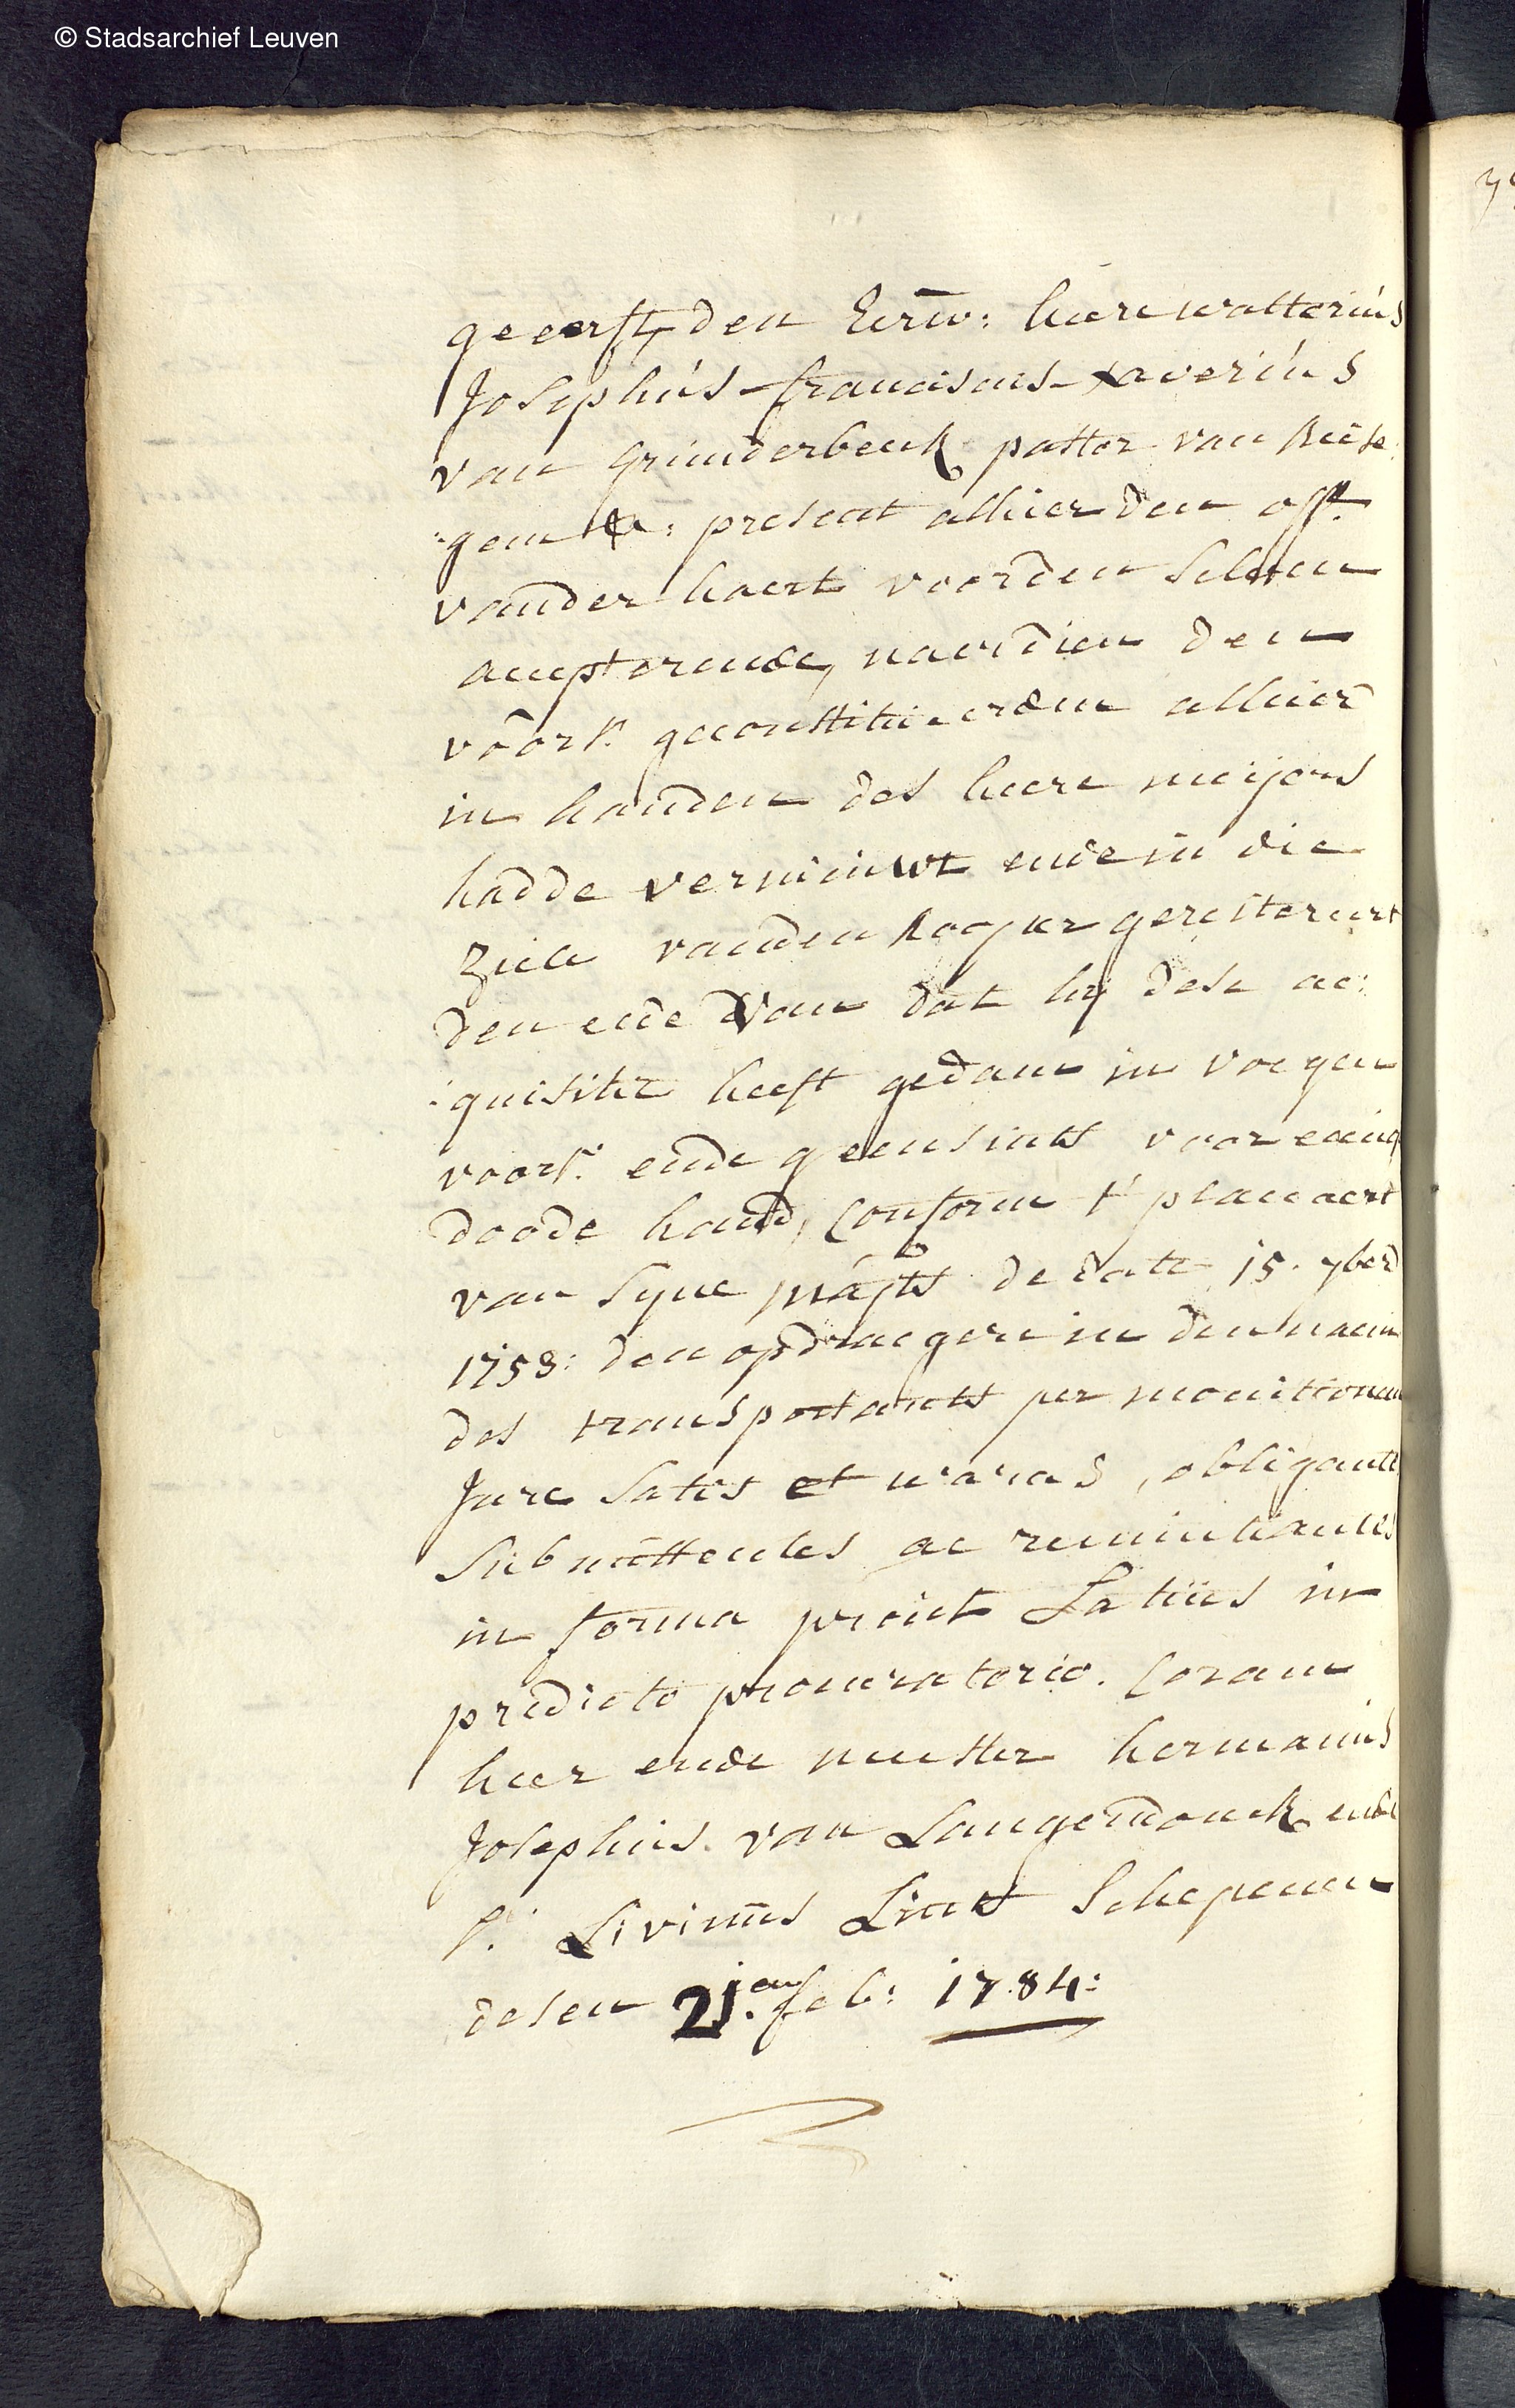 © Stadsarchief Leuven
geerft, den Eerw: heere walterius
Josephus franciscus xaverius
van Grunderbeeck pastor van
gem &a: present alhier den off.r
vander haert voor den selven
accepterende, naer dien den
voors. geconstitueerden alhier
in handen des heere meijers
hadde vernieuwt ende in die
ziele vanden kooper gereitereert
den eede van dat hij dese ac:
:quisitie heeft gedaen in voegen
voors. ende geensints voor eenig
doode hand, conform t' placcaert
van syne ma.jts de date 15. 7ber
1753: den opdraegere in den naem
des transportants per monitionem
Jure satis et waras, obligantes
submittentes ac renuntiantes
in forma prout Latius in
predicto procuratorio. Coram
heer ende meester hermanus
Josephus van Langendonck ende
s.r Livinus Lints Schepenen
desen 21.en feb: 1784: